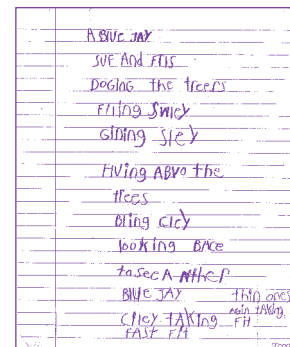 A BlUe JAY
SUE And FTIS
DOGING the treers
FliNg SWIeY
GiNiNg SleY
FlViNg ABVO the
trees
Bling CleY
looking BACe
to see A Nther
BlUe JAY thin ones
CIleY TAKING FH
FAST FH